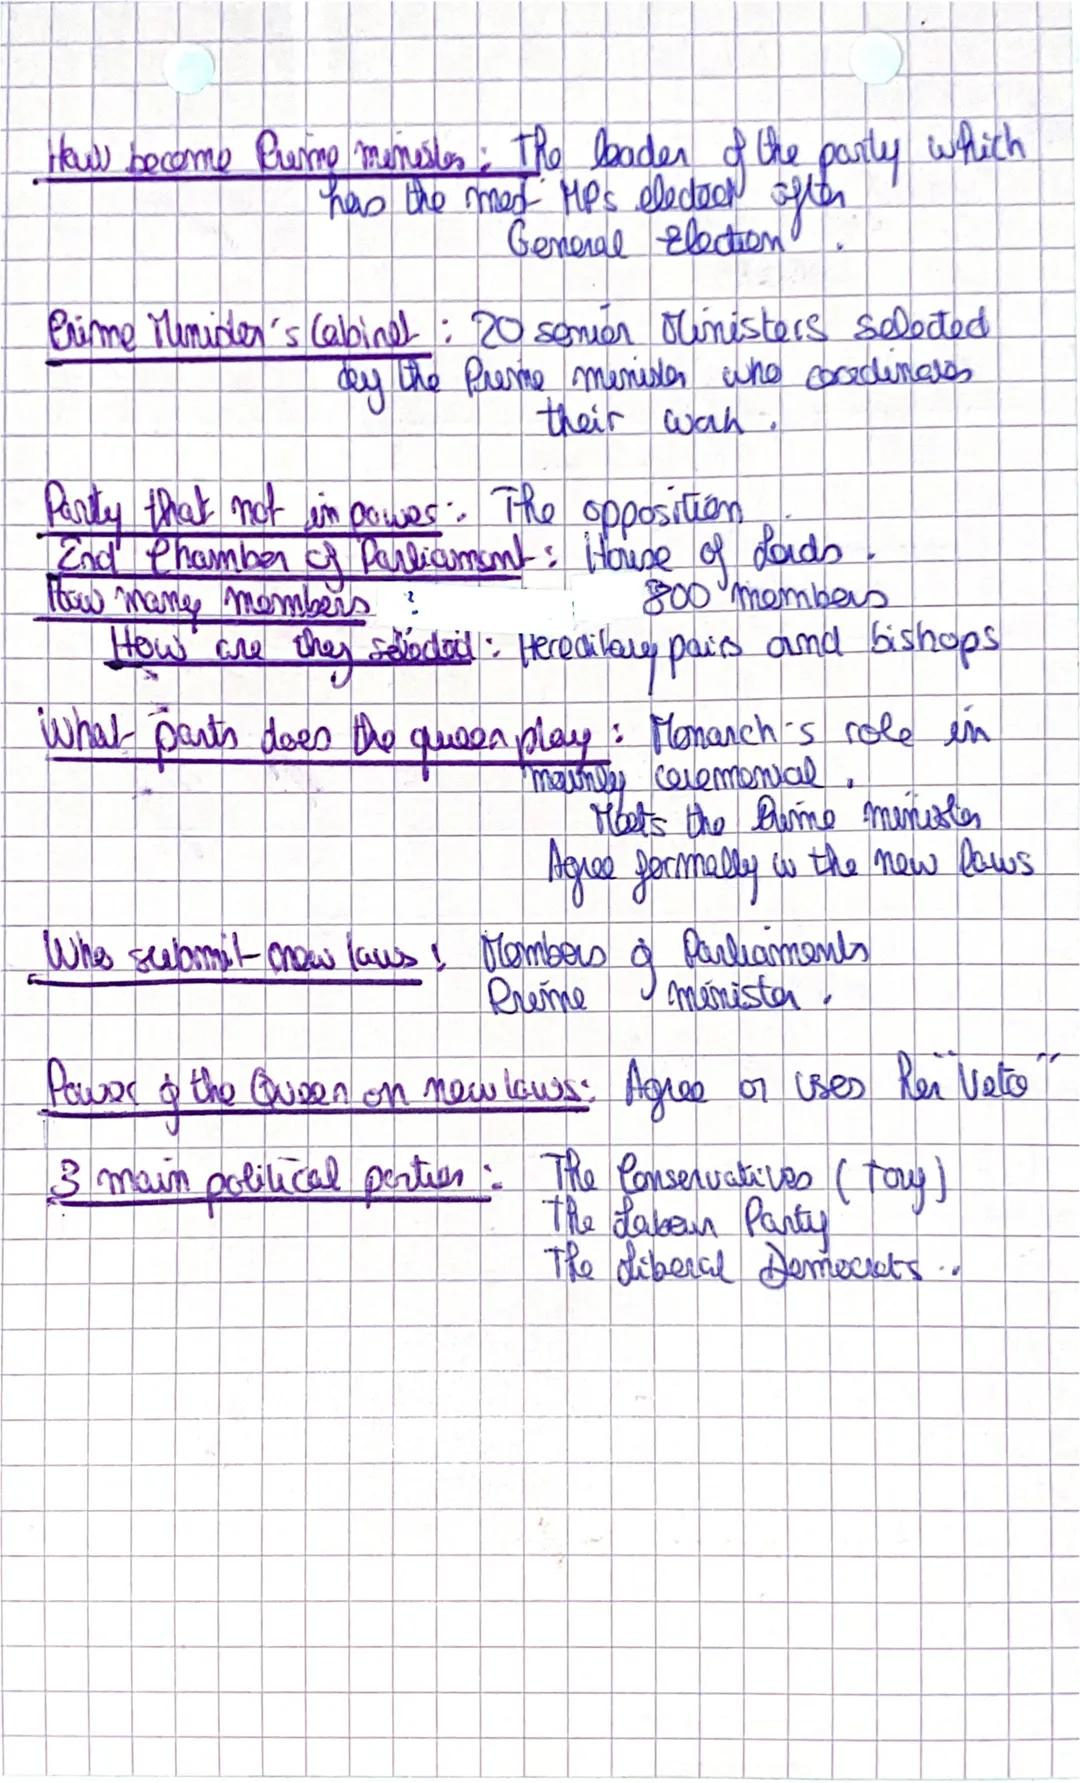 How become Prime minister : The leader of the party which
has the most MPs elected after
General Election .
Prime Minister's Cabinet : 20 senior Ministers selected
by the Prime minister who coordinates
their work .
Party that not in power : The opposition
2nd Chamber of Parliament : House of Lords .
How many members : 800 members
How are they selected : Hereditary pairs and bishops
What parts does the queen play : Monarch's role in
mainly ceremonial .
Meets the Prime minister
Agree formally the new laws
Who submit new laws : Members of Parliaments
Prime minister .
Power of the Queen on new laws : Agree or uses Her "Veto"
3 main political parties : The Conservatives (Tory)
The Labour Party
The Liberal Democrats ..